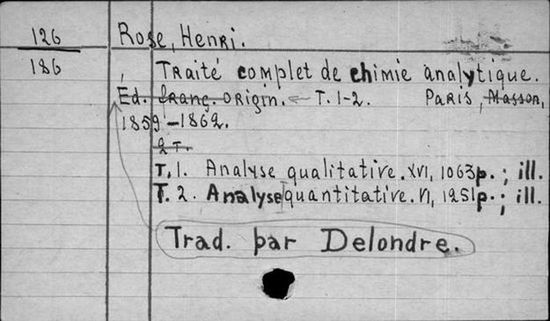 126 Rose, Henri.
186 Traité complet de chimie analytique.
Ed. franç. origin. ← T. 1-2. Paris, Masson,
1859-1862.
2 T.
T. 1. Analyse qualitative. XVI, 1063p.; ill.
T. 2. Analyse quantitative. VI, 1251p.; ill.
Trad. par Delondre.